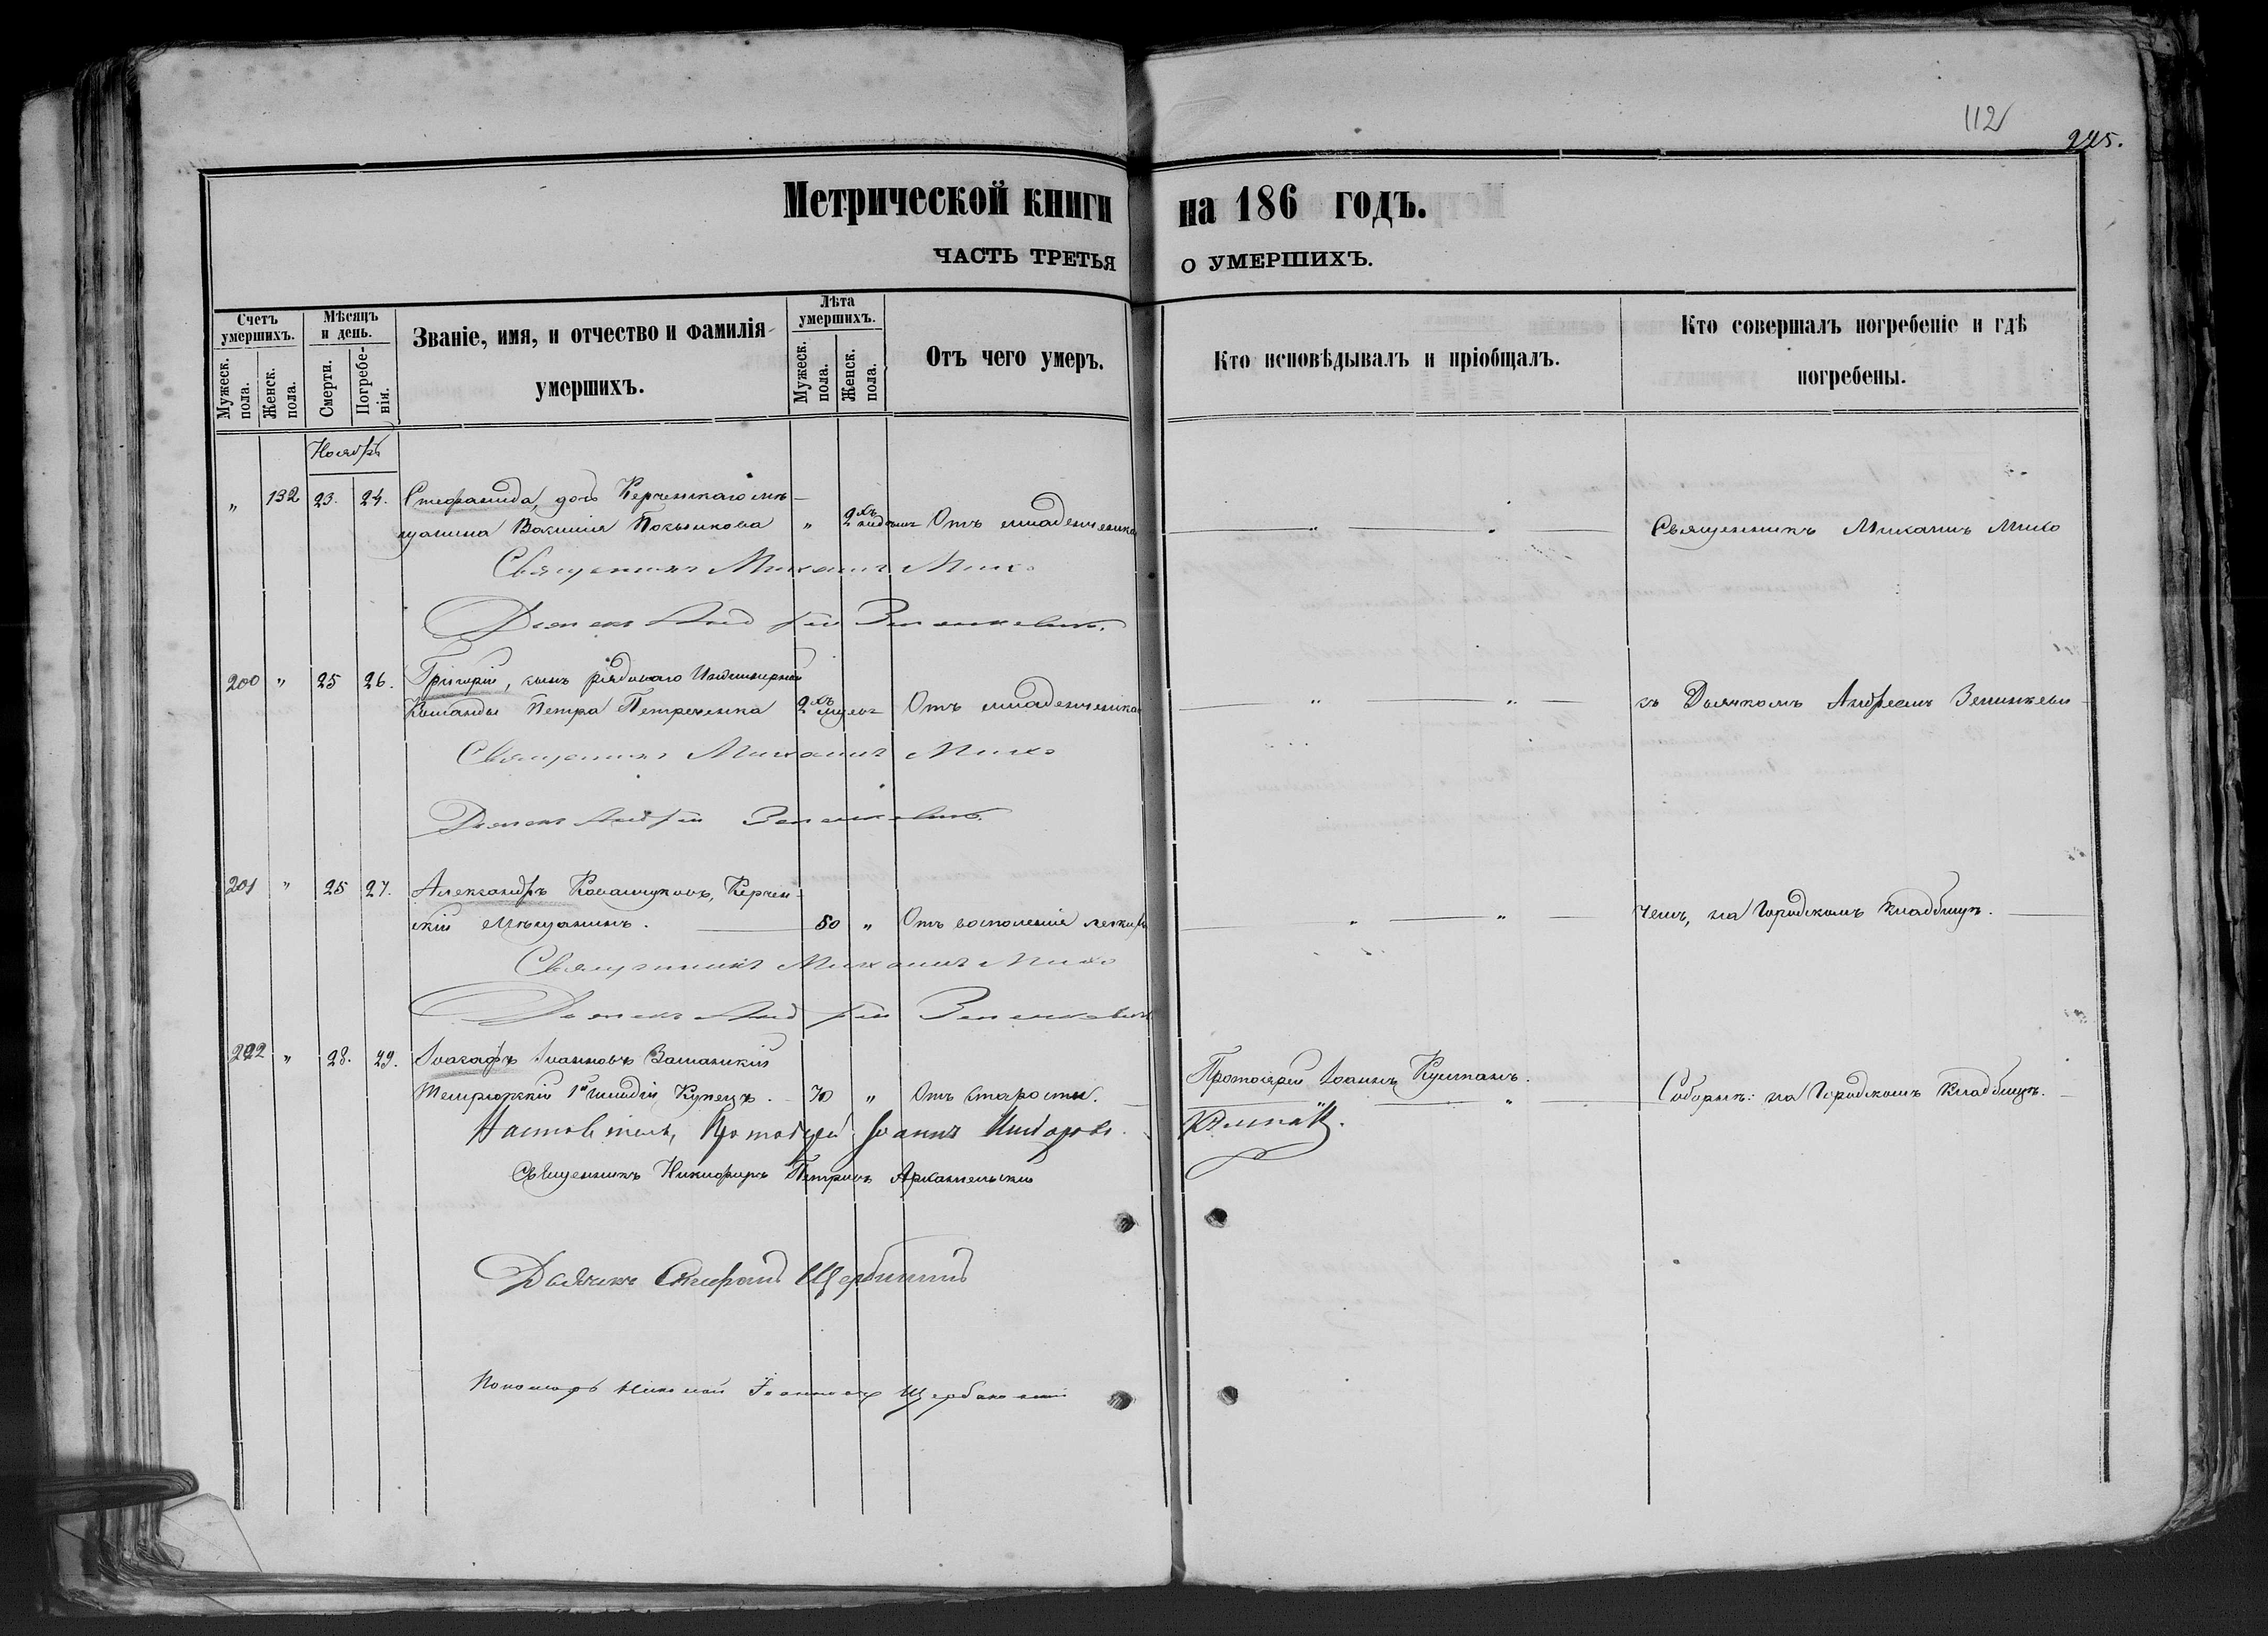 112
225.
Метрической книги на 186 годъ.
ЧАСТЬ ТРЕТЬЯ О УМЕРШИХЪ.
Счетъ умершихъ.
Мужеск. пола.
Женск. пола.
Мѣсяцъ и день.
Смерти.
Погребенія.
Званіе, имя, и отчество и фамилія
умершихъ.
Лѣта умершихъ.
Мужеск. пола.
Женск. пола.
Отъ чего умеръ.
Кто исповѣдывалъ и пріобщалъ.
Кто совершалъ погребеніе и гдѣ
погребены.
Ноябрь
" 132 23. 24. Стефанида, дочь Керченскаго мѣ-
щанина " 2хъ Отъ младенческой " " Священникъ Михаилъ Михо
Священникъ Михаилъ Михо
Дьячекъ Андрей Зенькевичъ.
200 " 25 26. Григорій, сынъ рядоваго Инженерной
Команды Петра Петренка 2хъ Отъ младенческой " " съ Дьячкомъ Андреемъ Зенькеви-
Священникъ Михаилъ Михо
Дьячекъ Андрей Зенькевичъ
201 " 25 27. Александръ Керчен-
скій мѣщанинъ. 50 " Отъ воспаленія легкихъ " " чемъ, на Городскомъ Кладбищѣ.
Священникъ Михаилъ Михо
Дьячекъ Андрей Зенькевичъ
202 " 28. 29. Іоасафъ Іоанновъ
Темрюкскій 1й гильдіи Купецъ. 70 " Отъ старости. Протоіерей Іоаннъ " Соборнѣ: на Городскомъ Кладбищѣ.
Протоіерей Іоаннъ
Священникъ Никифоръ Петровъ Архангельскій
Дьячекъ Стефанъ Щербининъ
Пономарь Николай Іоанновъ